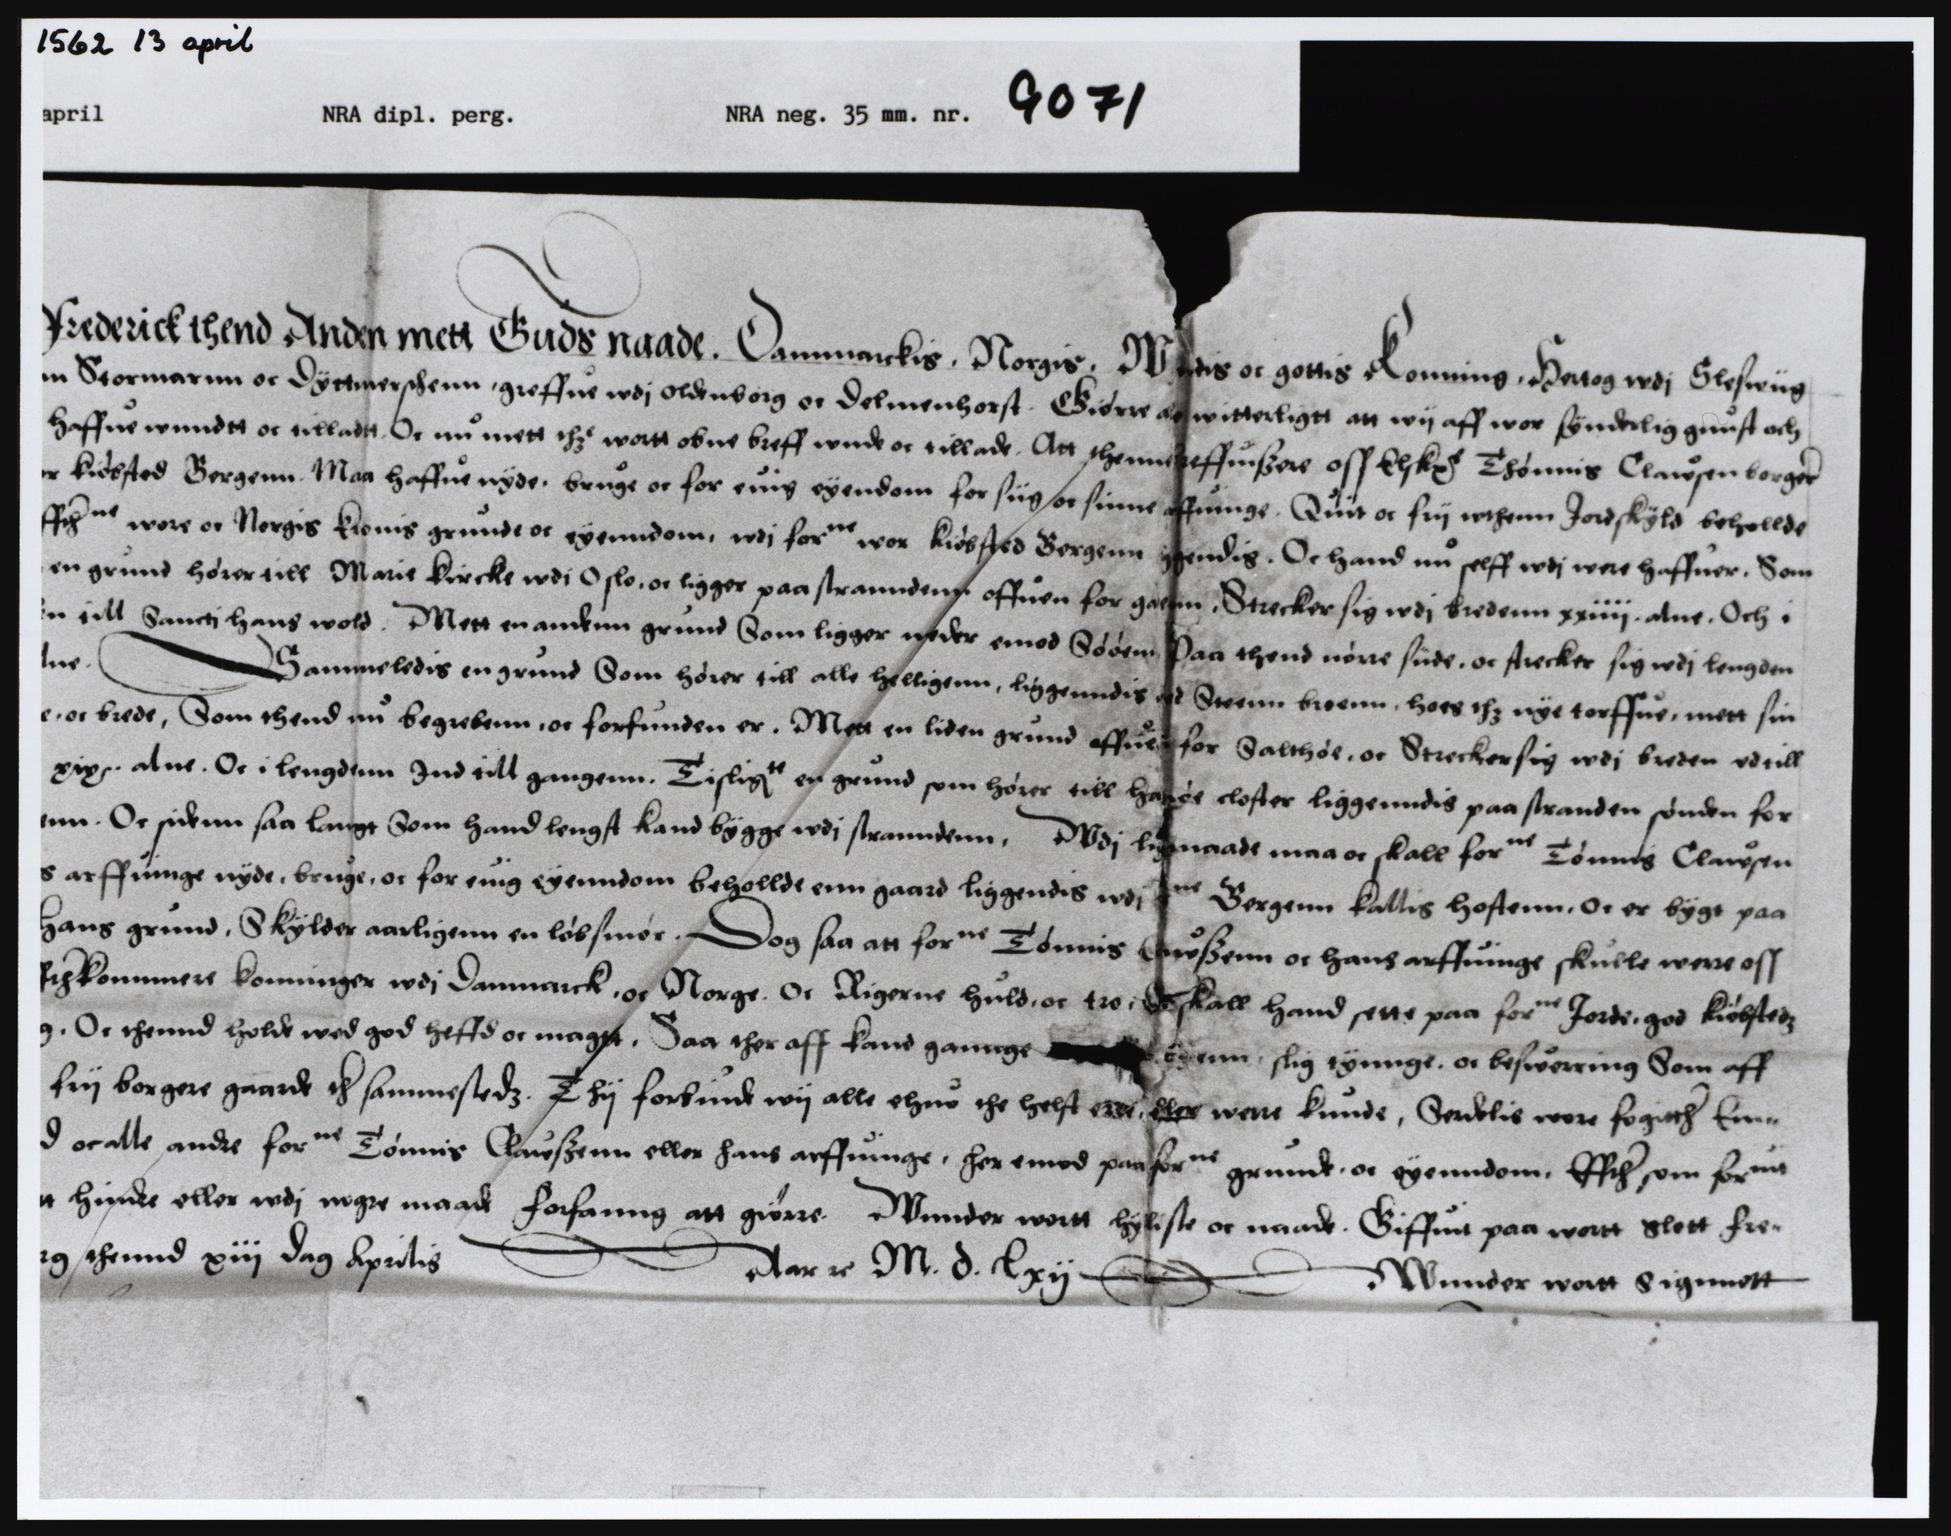 1562 13 april
april NRA dipl. perg. NRA neg. 35 mm. nr. 9071
Frederick thend Anden mett Guds naade. Danmarckis, Norgis, Wendis oc gottis Konning, Hertog wdj Sleswiig
Stormarnn oc Dyttmerschenn, greffue wdj oldenborg oc delmenhorst. Giørre witterligtt att wij aff wor synderlig gunst och
haffue wundtt oc tilladtt. Oc nu mett thz wortt obne breff wnde oc tillade. Att thenne breffuißere oss Elskel Thønnis Clawsen borger
kiøbsted Bergenn. Maa haffue nyde, bruge oc for euig eyendom for siig oc sinne arffuinge. Quit oc frij wthenn Jordskyld beholde
wore oc Norgis kronis grunde oc eyenndom, wdj forne wor kiøbsted Bergenn liggendis. Oc hand nu selff wdj were haffuer. Som
en grund hører till Marie kircke wdj Oslo, oc ligger paa stranndenn offuen for gaenn, Strecker sig wdj bredenn xxiiii alne. Och i
till Sancti hans wold. Mett en andenn grund Som ligger neder emod Søøen Paa thend nørre siide, oc strecker sig wdj lengden
alne. Sammeledis en grund Som hører till alle helligenn, liggenndis ved Steenn broenn, hoes thz nye torffue, mett sin
oc brede, Som thend nu begrebenn oc forfunden er. Mett en liden grund offuen for Salthøe, oc Strecker sig wdj breden vd till
xix alne. Oc i lengdenn Ind till gangenn. Tisligte en grund som hører till closter liggenndis paa stranden sønden for
Oc sidenn saa langt Som hand lengst kand bygge wdj stranndenn. Wdj lige maade maa oc skall forne Tønnis Clawsen
arffuinge nyde, bruge, oc for euig eyenndom behollde enn gaard liggendis wdj forne Bergenn kallis hoffuenn, Oc er bygt paa
hans grund, Skylder aarligenn en løbsmør. Dog saa att forne Tønnis Clawßenn oc hans arffuinge skulle werre oss
efftherkommere konninger wdj Danmarck, oc Norge. Oc Rigerne huld, oc tro, Oc skall hand sette paa forne Jorde, god kiøbstedz
Oc thennd holde wed god heffd oc magtt, Saa ther aff kand gannge slig tynnge, oc beswerring Som aff
frij borgere gaarde ther sammestedz. Thij forbiude wij alle ehuo the helst ere, eller werre kunde, Serdelis wore fogither Em-
oc alle andre forne Tønnis Clawßenn eller hans arffuinge, her emod paa forne grunde, oc eyenndom, Effther som forne
hindre eller wdj nogre maade forfanng att giørre. Wnnder wortt hyliste oc naade. Giffuit paa wortt Slott fre-
thennd xiij dag Aprilis Aar re M. d. Lxij Wnnder wortt Signnett